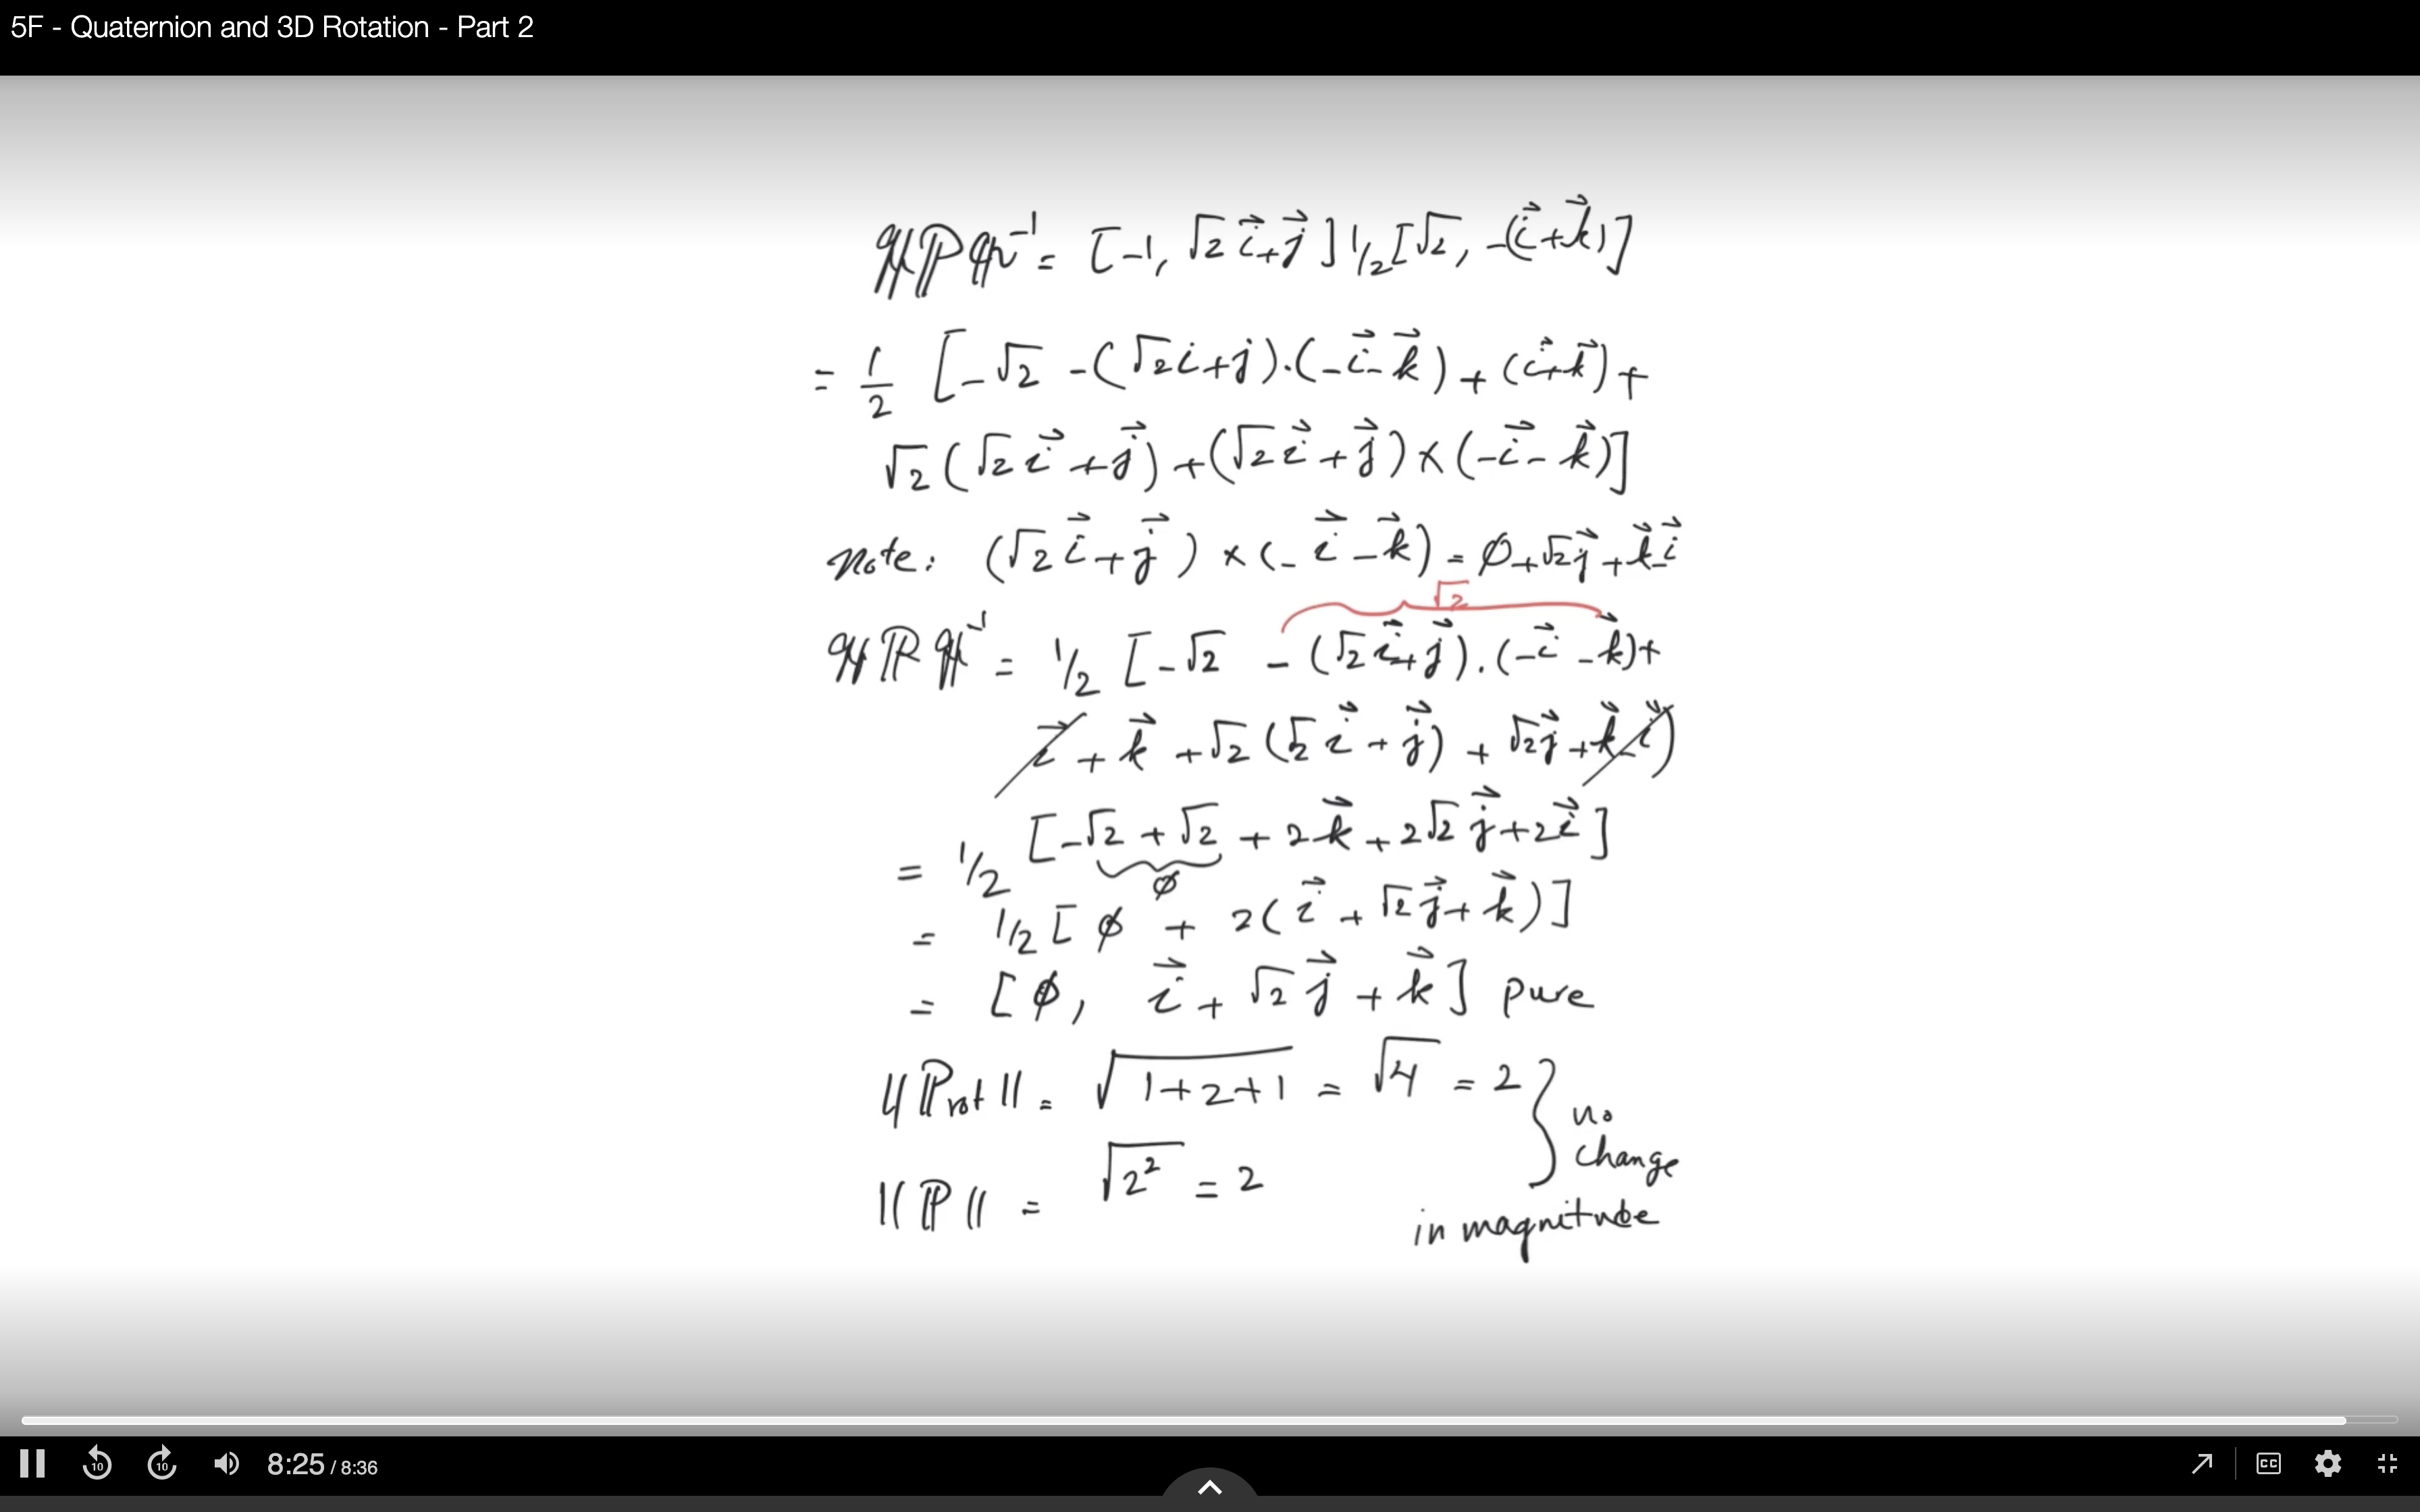 5F - Quaternion and 3D Rotation - Part 2
qPq⁻¹ = [-1, √2 i⃗+j⃗] 1/2 [√2, -(i⃗+k⃗)]
= 1/2 [-√2 -(√2i+j)·(-i⃗-k⃗) + (i⃗+k⃗) +
√2(√2 i⃗ + j⃗) + (√2 i⃗ + j⃗) × (-i⃗ - k⃗)]
note: (√2 i⃗ + j⃗) × (-i⃗ - k⃗) = ∅ + √2 j⃗ + k⃗ - i⃗
√2
qPq⁻¹ = 1/2 [-√2 - (√2 i⃗+j⃗)·(-i⃗ - k⃗) +
i⃗ + k⃗ + √2(√2 i⃗ + j⃗) + √2 j⃗ + k⃗ - i⃗)
= 1/2 [-√2 + √2 + 2k⃗ + 2√2 j⃗ + 2i⃗]
∅
= 1/2 [∅ + 2(i⃗ + √2 j⃗ + k⃗)]
= [∅, i⃗ + √2 j⃗ + k⃗] pure
||Prot|| = √1+2+1 = √4 = 2
no
change
||P|| = √2² = 2
in magnitude
10
10
8:25 / 8:36
CC